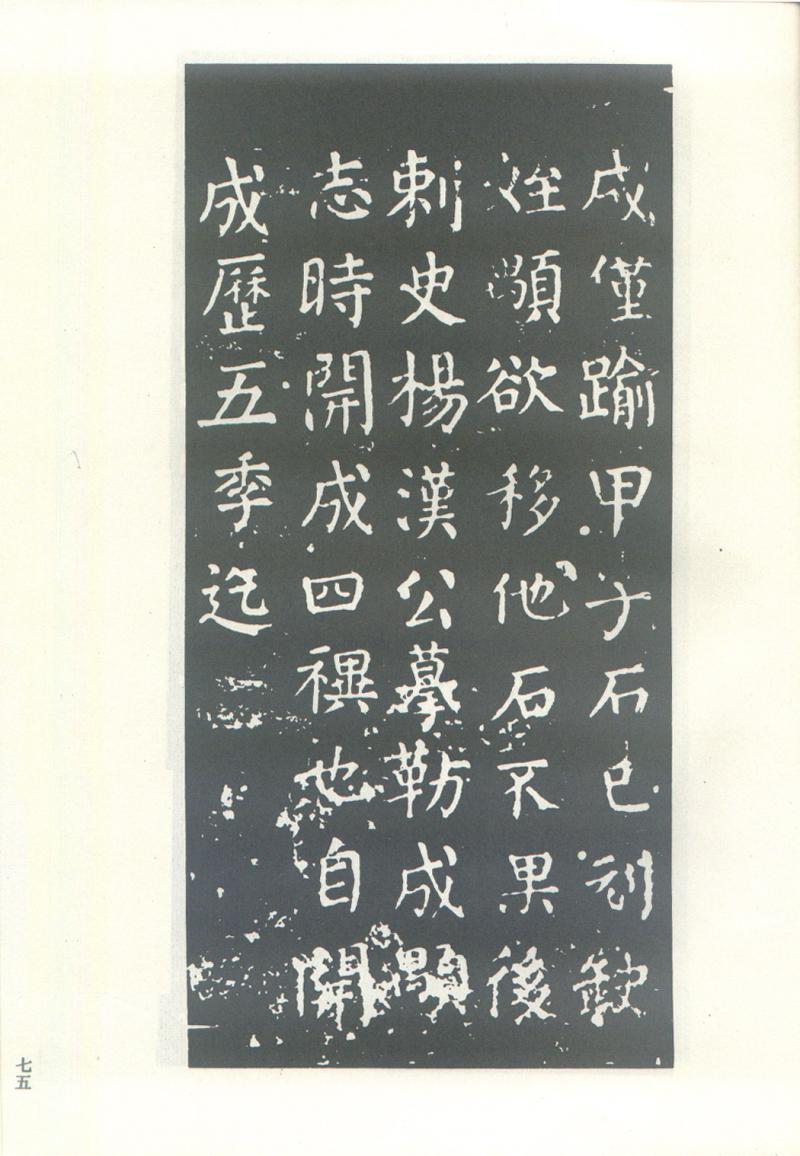 成僅踰甲子石已刓缺
姪顒欲移他石不果後
刺史楊漢公摹勒成顒
志時開成四禩也自開
成歷五季迄
七五